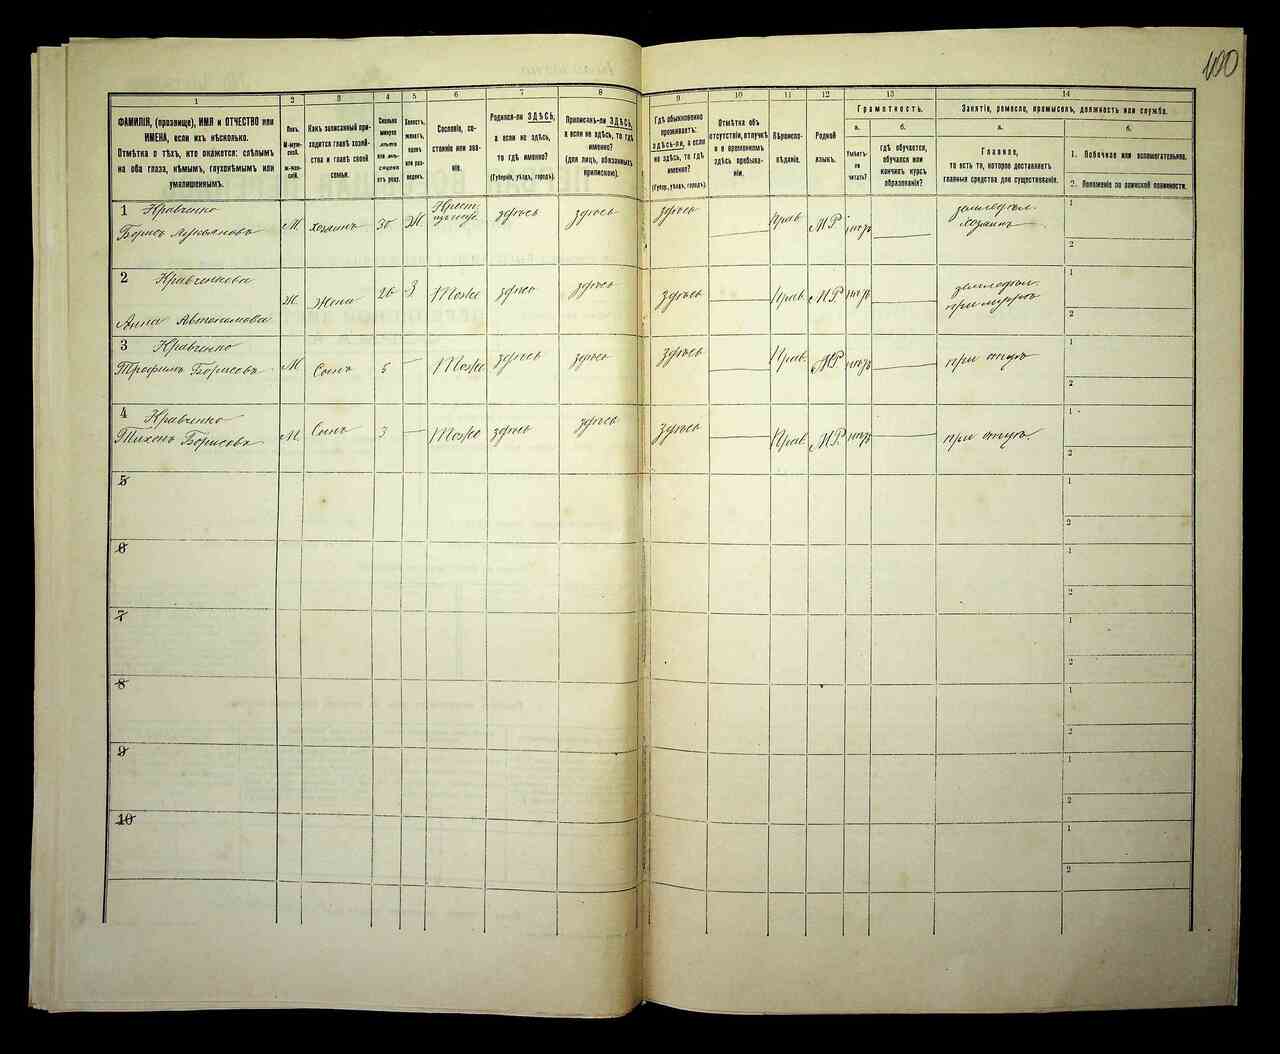 100
1
2
3
4
5
6
7
8
9
10
11
12
13
14
ФАМИЛІЯ, (прозвище), ИМЯ и ОТЧЕСТВО или
ИМЕНА, если ихъ нѣсколько.
Отмѣтка о тѣхъ, кто окажется: слѣпымъ
на оба глаза, нѣмымъ, глухонѣмымъ или
умалишеннымъ.
Полъ.
М-муж-
ской.
Ж-жен-
скій.
Какъ записанный при-
ходится главѣ хозяй-
ства и главѣ своей
семьи.
Сколько
минуло
лѣтъ
или мѣ-
сяцевъ
отъ роду.
Холостъ,
женатъ,
вдовъ
или раз-
веденъ.
Сословіе, со-
стояніе или зва-
ніе.
Родился-ли ЗДѢСЬ,
а если не здѣсь,
то гдѣ именно?
(Губернія, уѣздъ, городъ).
Приписанъ-ли ЗДѢСЬ,
а если не здѣсь, то гдѣ
именно?
(для лицъ, обязанныхъ
припискою).
Гдѣ обыкновенно
проживаетъ:
здѣсь-ли, а если
не здѣсь, то гдѣ
именно?
(Губер., уѣздъ, городъ).
Отмѣтка объ
отсутствіи, отлучкѣ
и о временномъ
здѣсь пребыва-
ніи.
Вѣроиспо-
вѣданіе.
Родной
языкъ.
Грамотность.
а.
б.
Умѣетъ-
ли
читать?
гдѣ обучается,
обучался или
кончилъ курсъ
образованія?
Занятіе, ремесло, промыселъ, должность или служба.
а.
б.
Главное,
то есть то, которое доставляетъ
главныя средства для существованія.
1. Побочное или вспомогательное.
2. Положеніе по воинской повинности.
1 Кравченко
Борисъ Лукьяновъ
М. хозяинъ 30 Ж. Крест. здѣсь здѣсь здѣсь Прав. МР. нѣтъ земледѣл. хозяинъ
1
2
2 Кравченкова
Анна Автономова
Ж. Жена 26 З здѣсь здѣсь здѣсь Прав. МР. нѣтъ земледѣл. при мужѣ
1
2
3 Кравченко
Трофимъ Борисовъ
М Сынъ 5 — здѣсь здѣсь здѣсь Прав. МР. нѣтъ при отцѣ
1
2
4 Кравченко
Тихонъ Борисовъ
М. Сынъ 3 — здѣсь здѣсь здѣсь Прав. МР. нѣтъ при отцѣ.
1
2
5
1
2
6
1
2
7
1
2
8
1
2
9
1
2
10
1
2